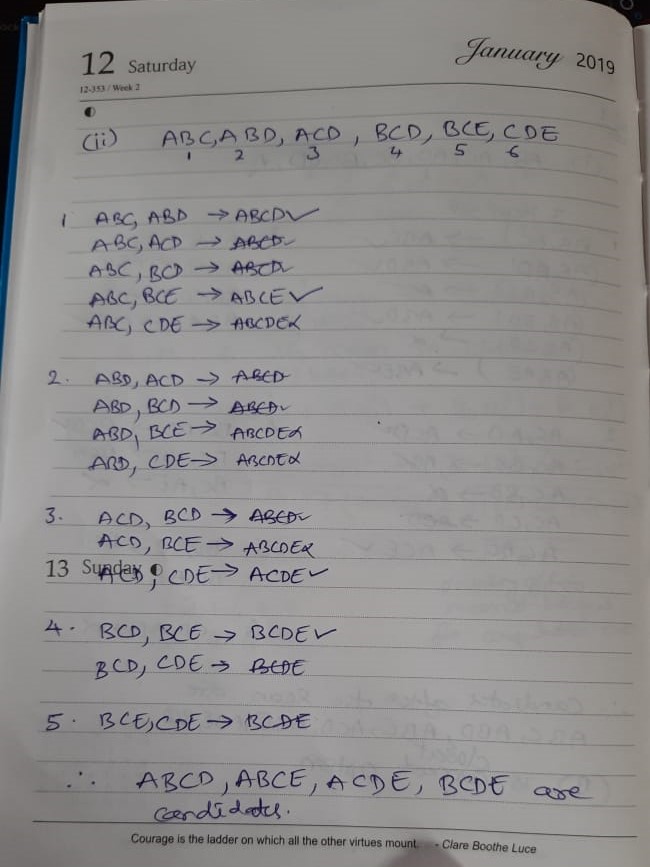 12 Saturday January 2019
12-353 / Week 2
(ii) ABC, ABD, ACD, BCD, BCE, CDE
1 2 3 4 5 6
1 ABC, ABD → ABCD✓
ABC, ACD → ABCD✓
ABC, BCD → ABCD✓
ABC, BCE → ABCE✓
ABC, CDE → ABCDEx
2. ABD, ACD → ABCD
ABD, BCD → ABCD✓
ABD, BCE → ABCDEx
ABD, CDE → ABCDEx
3. ACD, BCD → ABCD✓
ACD, BCE → ABCDEx
13 Sunday
ACD, CDE → ACDE✓
4. BCD, BCE → BCDE✓
BCD, CDE → BCDE
5. BCE, CDE → BCDE
∴ ABCD, ABCE, ACDE, BCDE are
candidates.
Courage is the ladder on which all the other virtues mount. - Clare Boothe Luce